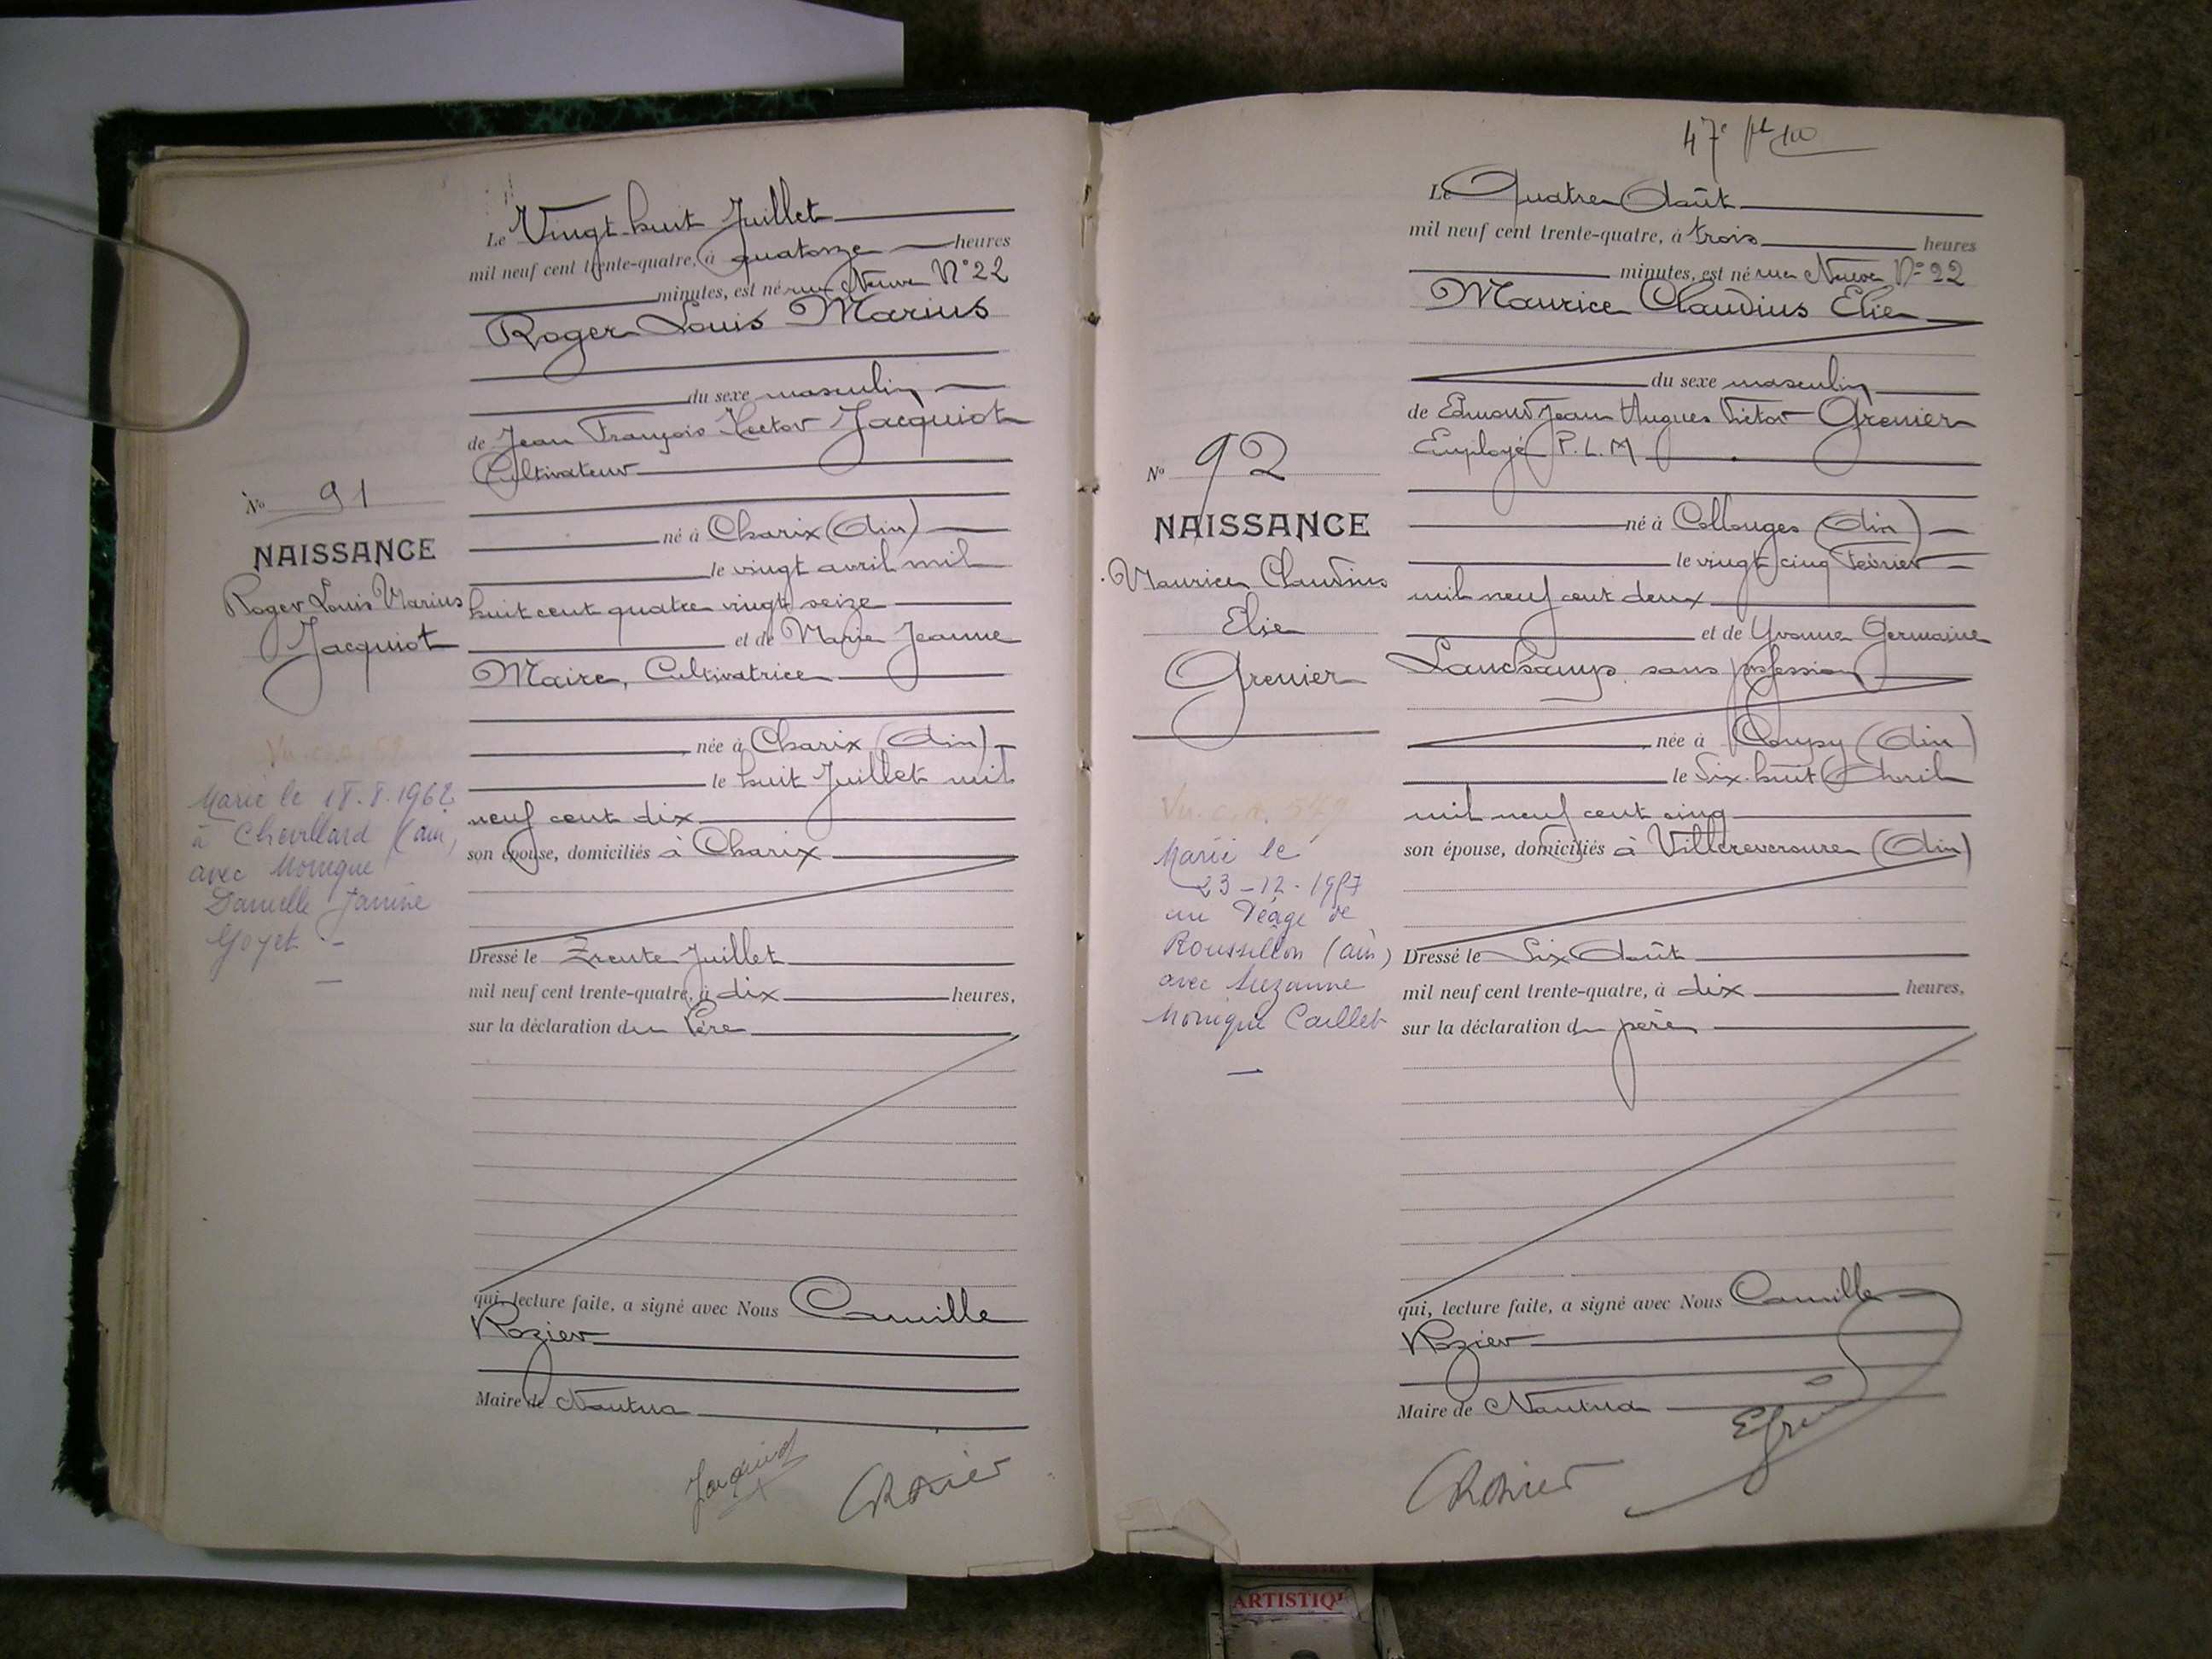 Le Vingt huit Juillet
mil neuf cent trente-quatre, à quatorze heures
minutes, est né rue Neuve N° 22
Roger Louis Marius
du sexe masculin
de Jean François Hector Jacquiot
Cultivateur
né à Charix (Ain)
le vingt avril mil
huit cent quatre vingt seize
et de Marie Jeanne
Maire, Cultivatrice
née à Charix (Ain)
le huit Juillet mil
neuf cent dix
son épouse, domiciliés à Charix
Dressé le Trente Juillet
mil neuf cent trente-quatre, à dix heures,
sur la déclaration du Père
qui, lecture faite, a signé avec Nous Camille
Rozier
Maire de Nantua
Jacquiot
CRozier
No 91
NAISSANCE
Roger Louis Marius
Jacquiot
Marié le 18.8.1962
à Chevillard (ain)
avec Monique
Danielle Janine
Goyet .-
47e
Le Quatre Août
mil neuf cent trente-quatre, à trois heures
minutes, est né rue Neuve N° 22
Maurice Claudius Elie
du sexe masculin
de Edmond Jean Hugues Victor Grenier
Employé P.L.M
né à Collonges (Ain)
le vingt cinq Février
mil neuf cent deux
et de Yvonne Germaine
Lanchamp, sans profession
née à (Ain)
le Six huit Avril
mil neuf cent cinq
son épouse, domiciliés à Villereversure (Ain)
Dressé le Six Août
mil neuf cent trente-quatre, à dix heures,
sur la déclaration du père
qui, lecture faite, a signé avec Nous Camille
Rozier
Maire de Nantua
CRozier
No 92
NAISSANCE
Maurice Claudius
Elie
Grenier
Marié le
23-12-1957
au Péage de
Roussillon (ain)
avec Suzanne
Monique Caillet
ARTISTIQUE